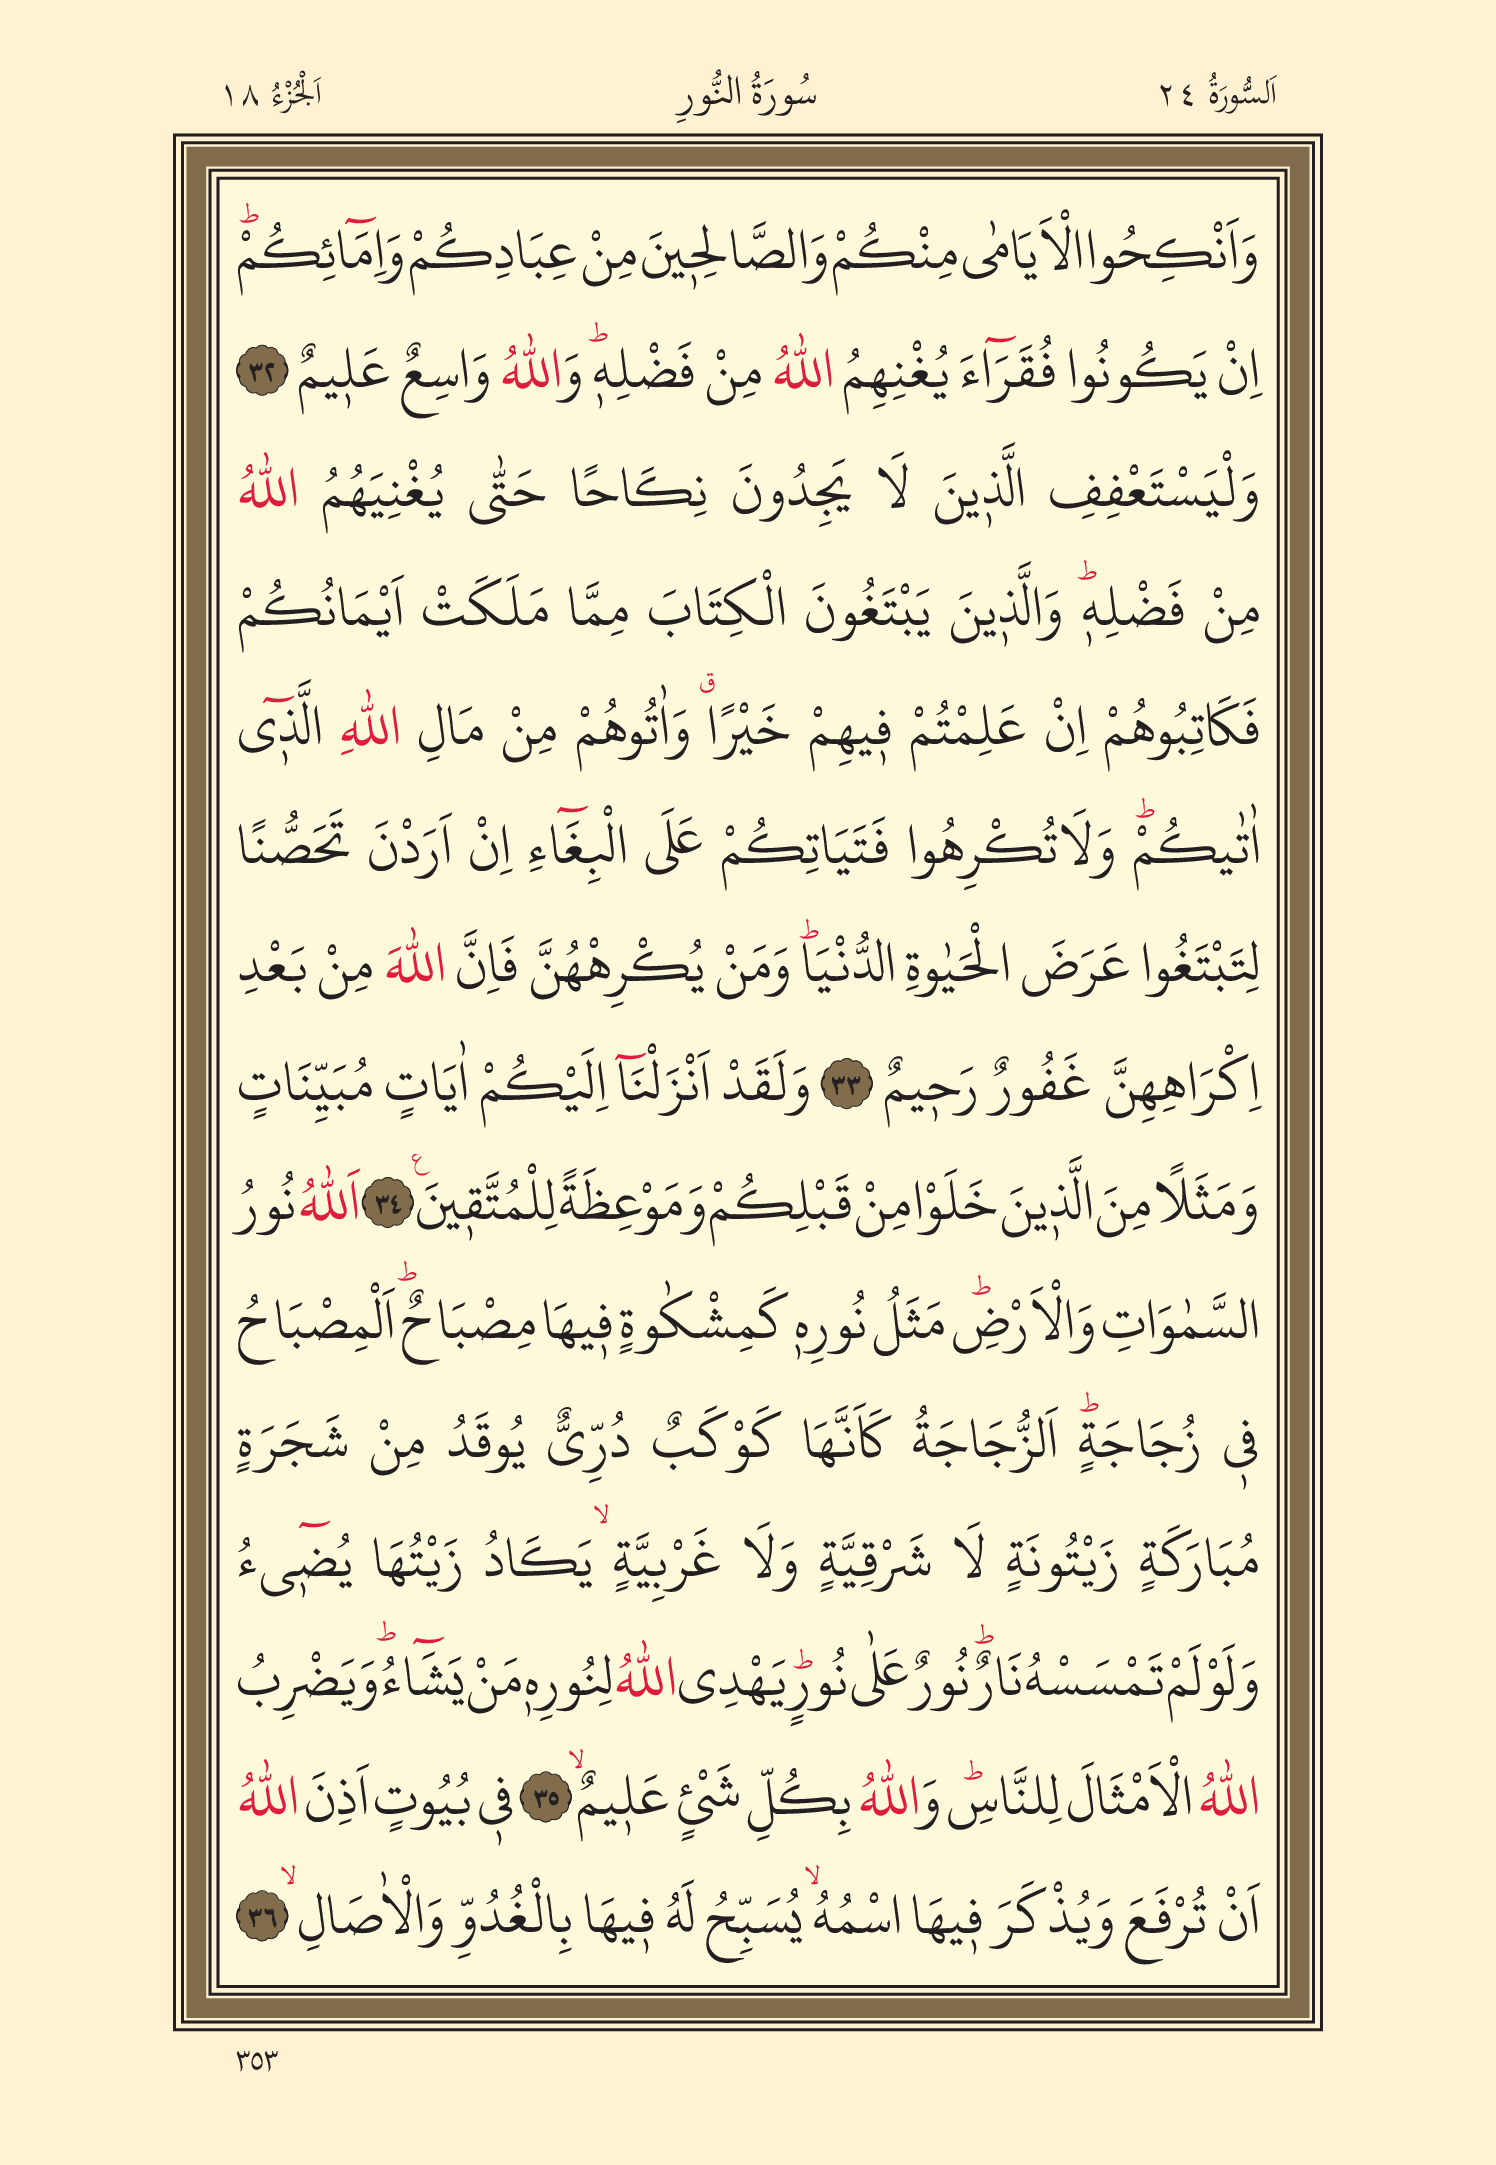 اَلسُّورَةُ ٢٤ سُورَةُ النُّورِ اَلْجُزْءُ ١٨
وَاَنْكِحُوا الْاَيَامٰى مِنْكُمْ وَالصَّالِحٖينَ مِنْ عِبَادِكُمْ وَاِمَٓائِكُمْؕ
اِنْ يَكُونُوا فُقَرَٓاءَ يُغْنِهِمُ اللّٰهُ مِنْ فَضْلِهٖؕ وَاللّٰهُ وَاسِعٌ عَلٖيمٌ ٣٢
وَلْيَسْتَعْفِفِ الَّذٖينَ لَا يَجِدُونَ نِكَاحًا حَتّٰى يُغْنِيَهُمُ اللّٰهُ
مِنْ فَضْلِهٖؕ وَالَّذٖينَ يَبْتَغُونَ الْكِتَابَ مِمَّا مَلَكَتْ اَيْمَانُكُمْ
فَكَاتِبُوهُمْ اِنْ عَلِمْتُمْ فٖيهِمْ خَيْرًاۗ وَاٰتُوهُمْ مِنْ مَالِ اللّٰهِ الَّذٖٓى
اٰتٰيكُمْؕ وَلَا تُكْرِهُوا فَتَيَاتِكُمْ عَلَى الْبِغَٓاءِ اِنْ اَرَدْنَ تَحَصُّنًا
لِتَبْتَغُوا عَرَضَ الْحَيٰوةِ الدُّنْيَاؕ وَمَنْ يُكْرِهْهُنَّ فَاِنَّ اللّٰهَ مِنْ بَعْدِ
اِكْرَاهِهِنَّ غَفُورٌ رَحٖيمٌ ٣٣ وَلَقَدْ اَنْزَلْنَٓا اِلَيْكُمْ اٰيَاتٍ مُبَيِّنَاتٍ
وَمَثَلًا مِنَ الَّذٖينَ خَلَوْا مِنْ قَبْلِكُمْ وَمَوْعِظَةً لِلْمُتَّقٖينَࣖ ٣٤ اَللّٰهُ نُورُ
السَّمٰوَاتِ وَالْاَرْضِؕ مَثَلُ نُورِهٖ كَمِشْكٰوةٍ فٖيهَا مِصْبَاحٌؕ اَلْمِصْبَاحُ
فٖى زُجَاجَةٍؕ اَلزُّجَاجَةُ كَاَنَّهَا كَوْكَبٌ دُرِّىٌّ يُوقَدُ مِنْ شَجَرَةٍ
مُبَارَكَةٍ زَيْتُونَةٍ لَا شَرْقِيَّةٍ وَلَا غَرْبِيَّةٍۙ يَكَادُ زَيْتُهَا يُضٖٓىءُ
وَلَوْ لَمْ تَمْسَسْهُ نَارٌؕ نُورٌ عَلٰى نُورٍؕ يَهْدِى اللّٰهُ لِنُورِهٖ مَنْ يَشَٓاءُؕ وَيَضْرِبُ
اللّٰهُ الْاَمْثَالَ لِلنَّاسِؕ وَاللّٰهُ بِكُلِّ شَيْئٍ عَلٖيمٌۙ ٣٥ فٖى بُيُوتٍ اَذِنَ اللّٰهُ
اَنْ تُرْفَعَ وَيُذْكَرَ فٖيهَا اسْمُهُۙ يُسَبِّحُ لَهُ فٖيهَا بِالْغُدُوِّ وَالْاٰصَالِۙ ٣٦
٣٥٣